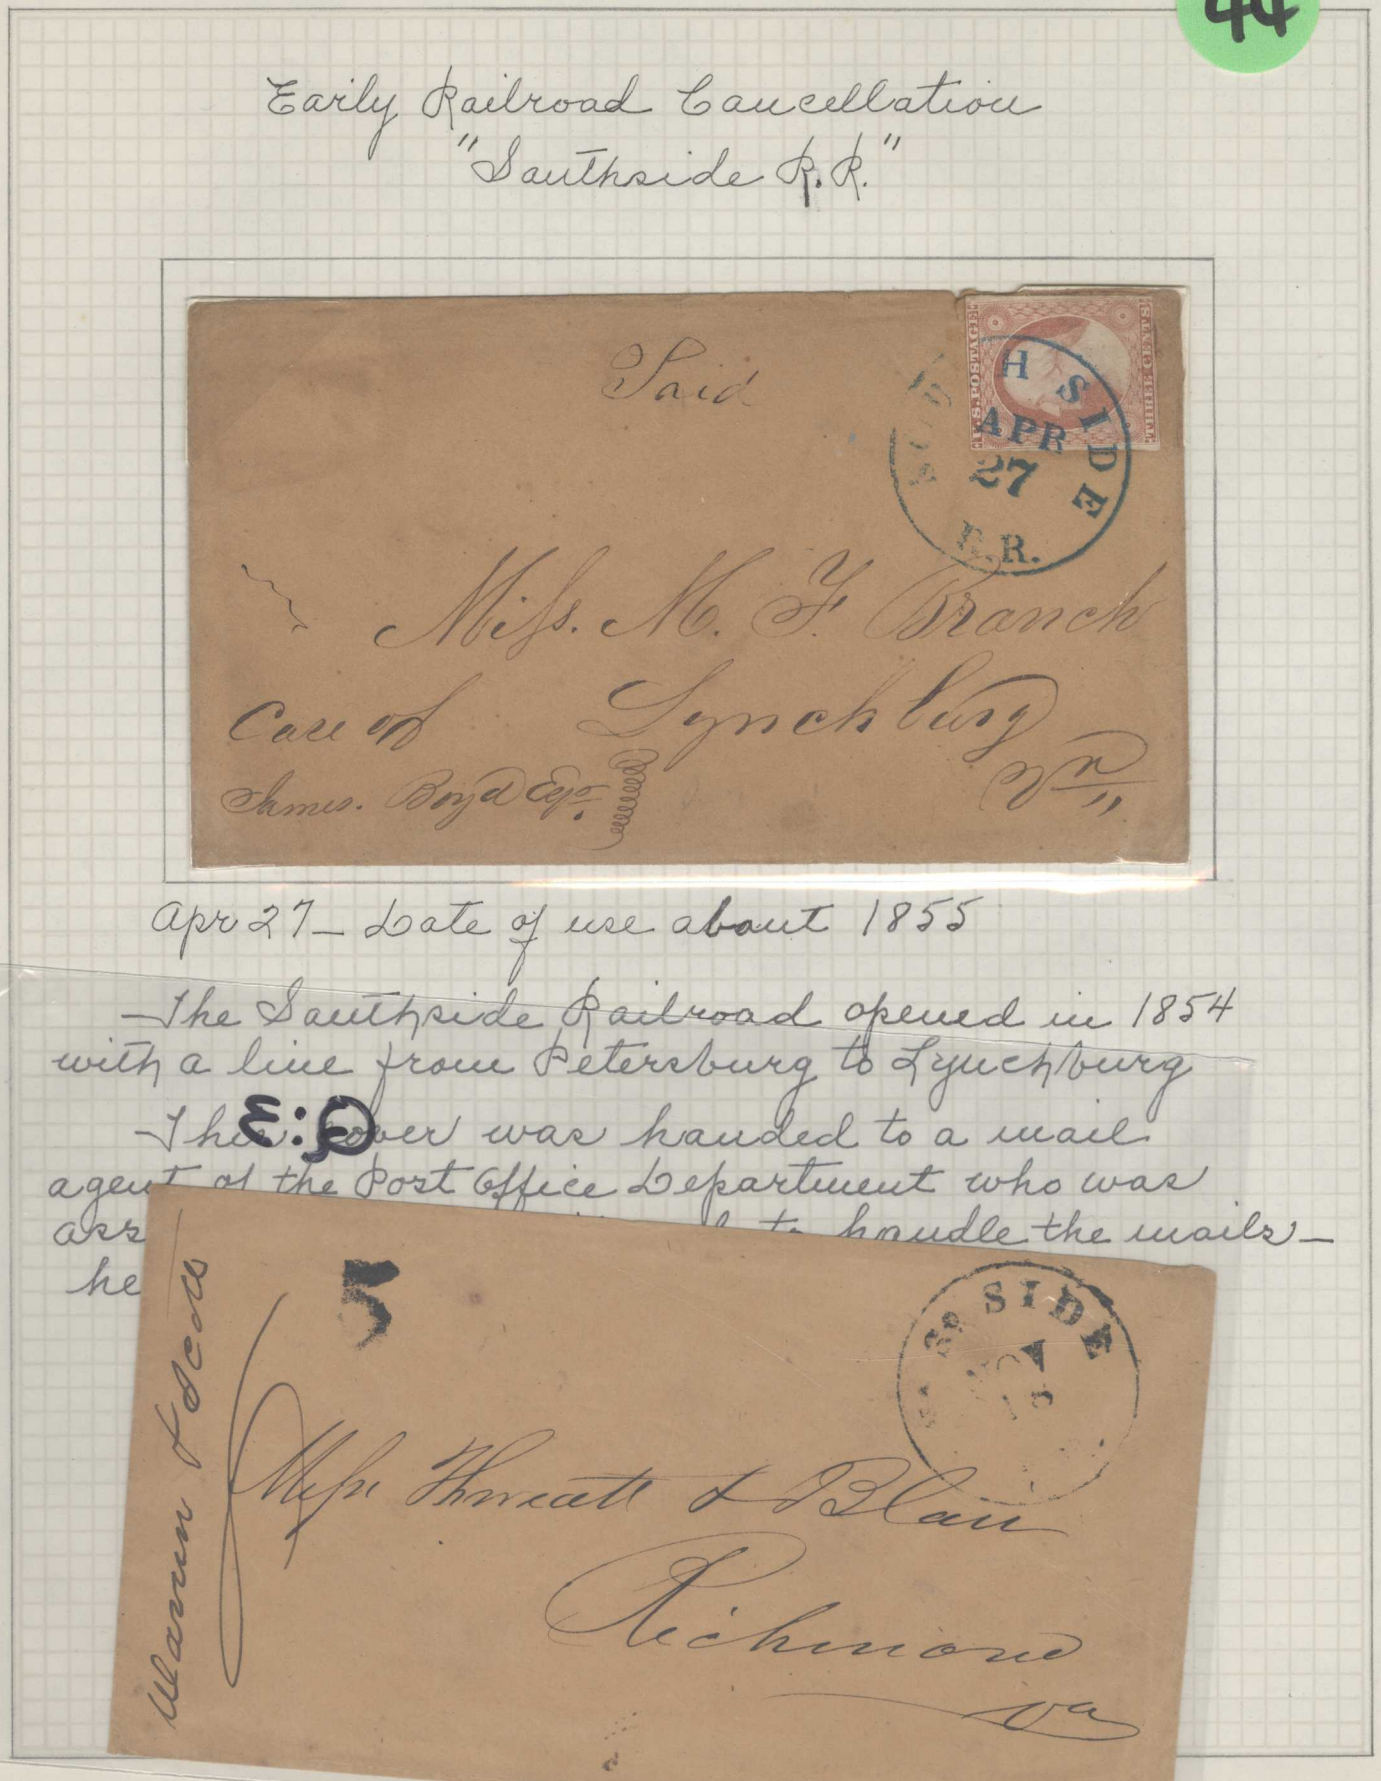 44
Early Railroad Cancellation
"Southside R.R."
Paid
U.S. POSTAGE
THREE CENTS
SOUTH SIDE
APR
27
R.R.
Miss. M. F. Branch
Care of Lynchburg
James. Boyd Esqr. Va
Apr 27 – Date of use about 1855
The Southside Railroad opened in 1854
with a line from Petersburg to Lynchburg
This cover was handed to a mail
agent of the Post Office Department who was
to handle the mails –
he
5
SIDE
Mess Thweatt & Blair
Richmond
Va